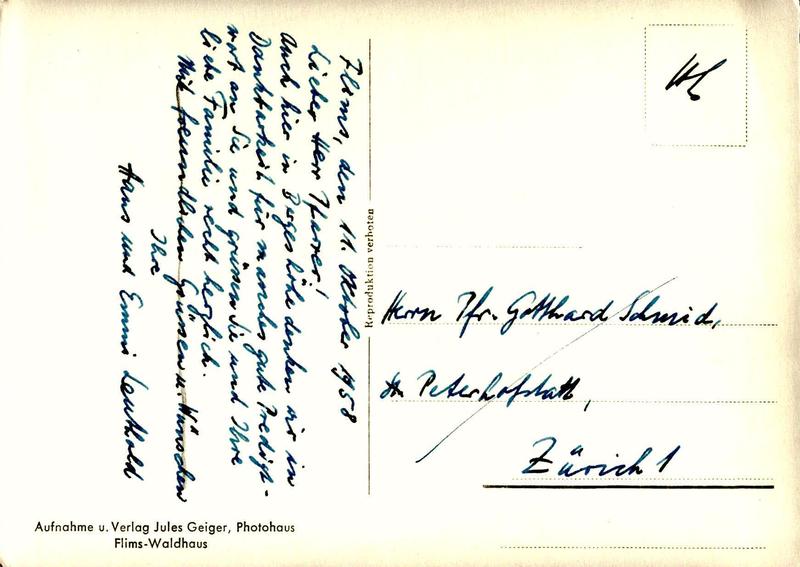 Flims, den 11. Oktober 1958
Lieber Herr Pfarrer!
Auch hier in Bergeshöhe denken wir in
Dankbarkeit für manches gute Predigt-
wort an Sie und grüssen Sie und Ihre
liebe Familie recht herzlich.
Mit freundlichen Grüssen u. Wünschen
Ihre
Hans und Emmi Leuthold
Reproduktion verboten
Herrn Pfr. Gotthard Schmid,
St. Peterhofstatt,
Zürich 1
Aufnahme u. Verlag Jules Geiger, Photohaus
Flims-Waldhaus